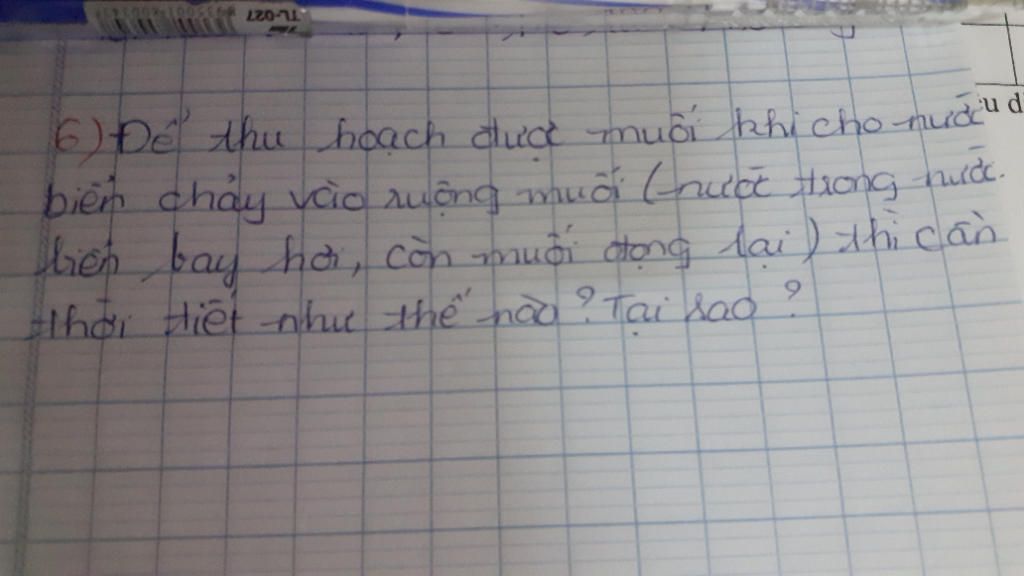 TL-027
u d
6) Để thu hoạch được muối khi cho nước
biển chảy vào ruộng muối (nước trong nước
biển bay hơi, còn muối đọng lại) thì cần
thời tiết như thế nào? Tại sao?